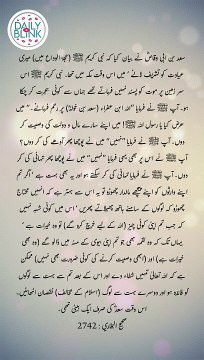 DAILY
BLINK
سعد بن ابی وقاص نے بیان کیا کہ نبی کریم ﷺ (حجۃ الوداع میں) میری
عیادت کو تشریف لائے ' میں اس وقت مکہ میں تھا۔ نبی کریم ﷺ اس
سر زمین پر موت کو پسند نہیں فرماتے تھے جہاں سے کوئی ہجرت کر چکا
ہو۔ آپ ﷺ نے فرمایا "اللہ ابن عفراء (سعد بن خولہ) پر رحم فرمائے۔" میں
عرض کیا یا رسول اللہ ﷺ! میں اپنے سارے مال و دولت کی وصیت کر
دوں۔ آپ ﷺ نے فرمایا "نہیں" میں نے پوچھا پھر آدھے کی کر دوں؟
آپ ﷺ نے اس پر بھی یہی فرمایا "نہیں" میں نے پوچھا پھر تہائی کی کر
دوں۔ آپ ﷺ نے فرمایا تہائی کی کر سکتے ہو اور یہ بھی بہت ہے ' اگر تم
اپنے وارثوں کو اپنے پیچھے مالدار چھوڑو تو یہ اس سے بہتر ہے کہ انہیں محتاج
چھوڑو کہ لوگوں کے سامنے ہاتھ پھیلاتے پھریں ' اس میں کوئی شبہ نہیں
کہ جب تم اپنی کوئی چیز (اللہ کے لیے خرچ کرو گے) تو وہ خیرات ہے '
یہاں تک کہ وہ لقمہ بھی جو تم اپنی بیوی کے منہ میں ڈالو گے (وہ بھی
خیرات ہے) اور (ابھی وصیت کرنے کی کوئی ضرورت بھی نہیں) ممکن
ہے کہ اللہ تعالیٰ تمہیں شفاء دے اور اس کے بعد تم سے بہت سے لوگوں
کو فائدہ ہو اور دوسرے بہت سے لوگ (اسلام کے مخالف) نقصان اٹھائیں۔
اس وقت سعدؓ کی صرف ایک بیٹی تھی۔
صحیح البخاری : 2742